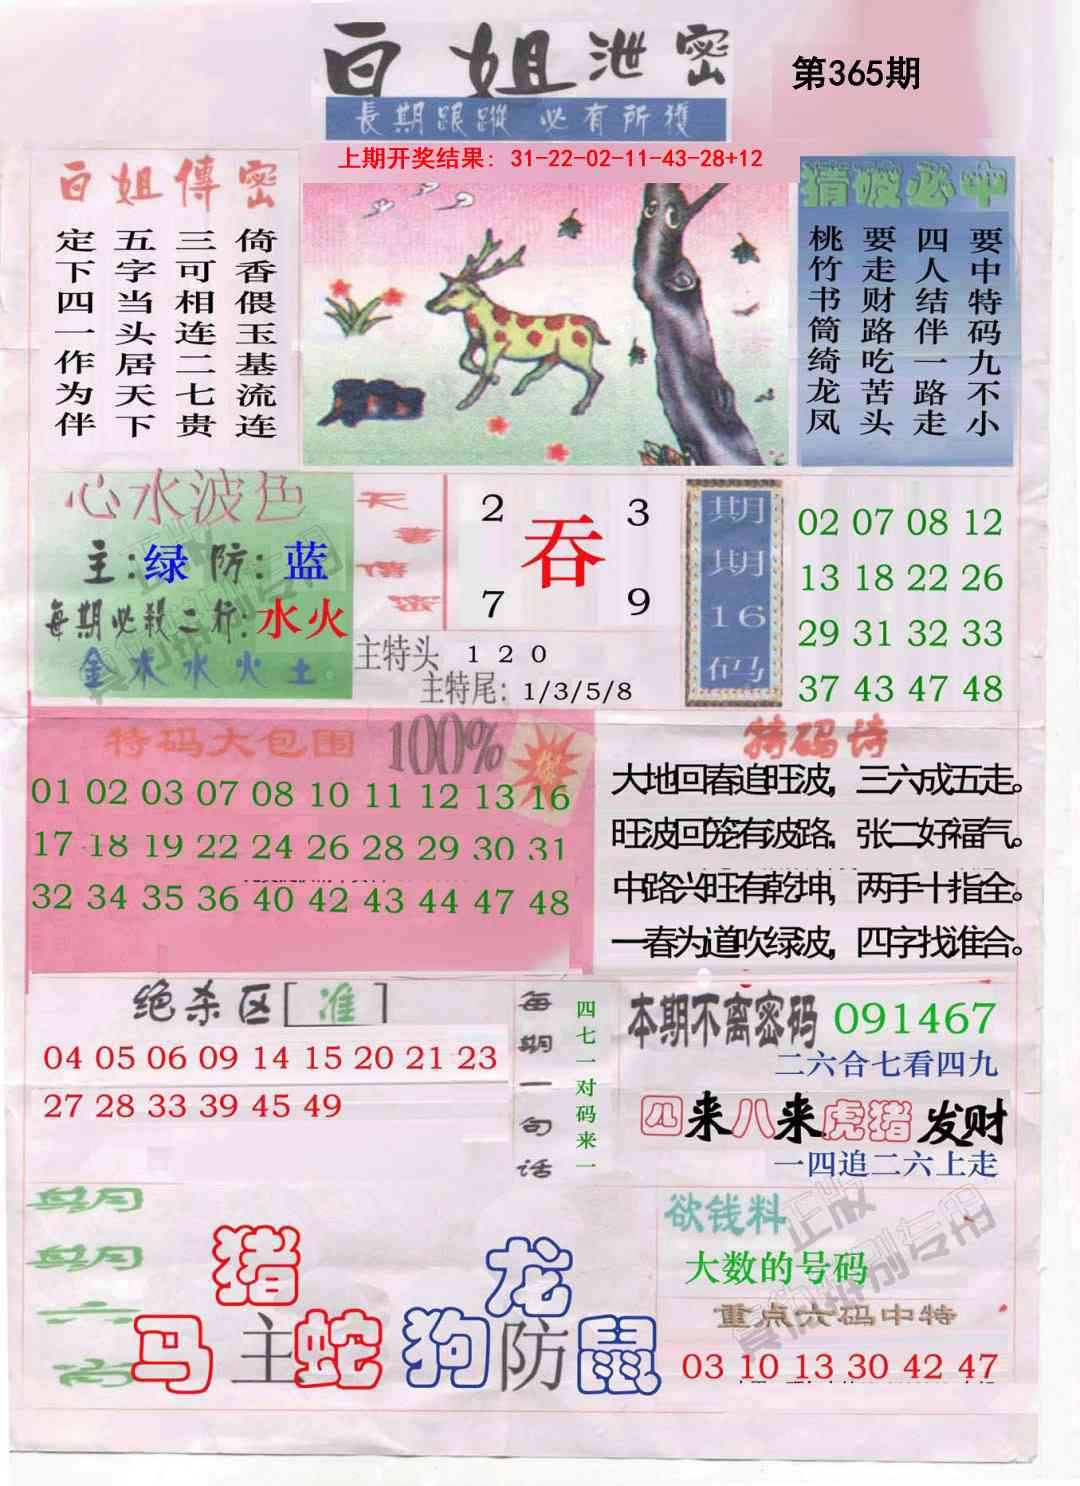 白姐泄密
第365期
長期跟蹤 必有所獲
上期开奖结果: 31-22-02-11-43-28+12
白姐傳密
倚香偎玉基流连
三可相连二七贵
五字当头居天下
定下四一作为伴
猜破必中
要中特码九不小
四人结伴一路走
要走财路吃苦头
桃竹书筒绮龙凤
心水波色
主:绿 防:蓝
每期必殺二行:水火
金木水火土
天書傳密
2 3
吞
7 9
主特头 1 2 0
主特尾: 1/3/5/8
期期16码
02 07 08 12
13 18 22 26
29 31 32 33
37 43 47 48
特码大包围 100%
01 02 03 07 08 10 11 12 13 16
17 18 19 22 24 26 28 29 30 31
32 34 35 36 40 42 43 44 47 48
特码诗
大地回春追旺波，三六成五走。
旺波回笼有波路，张二好福气。
中路兴旺有乾坤，两手十指全。
一春为道吹绿波，四字找谁合。
绝杀区[准]
04 05 06 09 14 15 20 21 23
27 28 33 39 45 49
每期一句话
四七一对码来一
本期不离密码 091467
二六合七看四九
四来八来虎猪发财
一四追二六上走
猪
马主蛇
龙
狗防鼠
欲钱料
大数的号码
重点六码中特
03 10 13 30 42 47